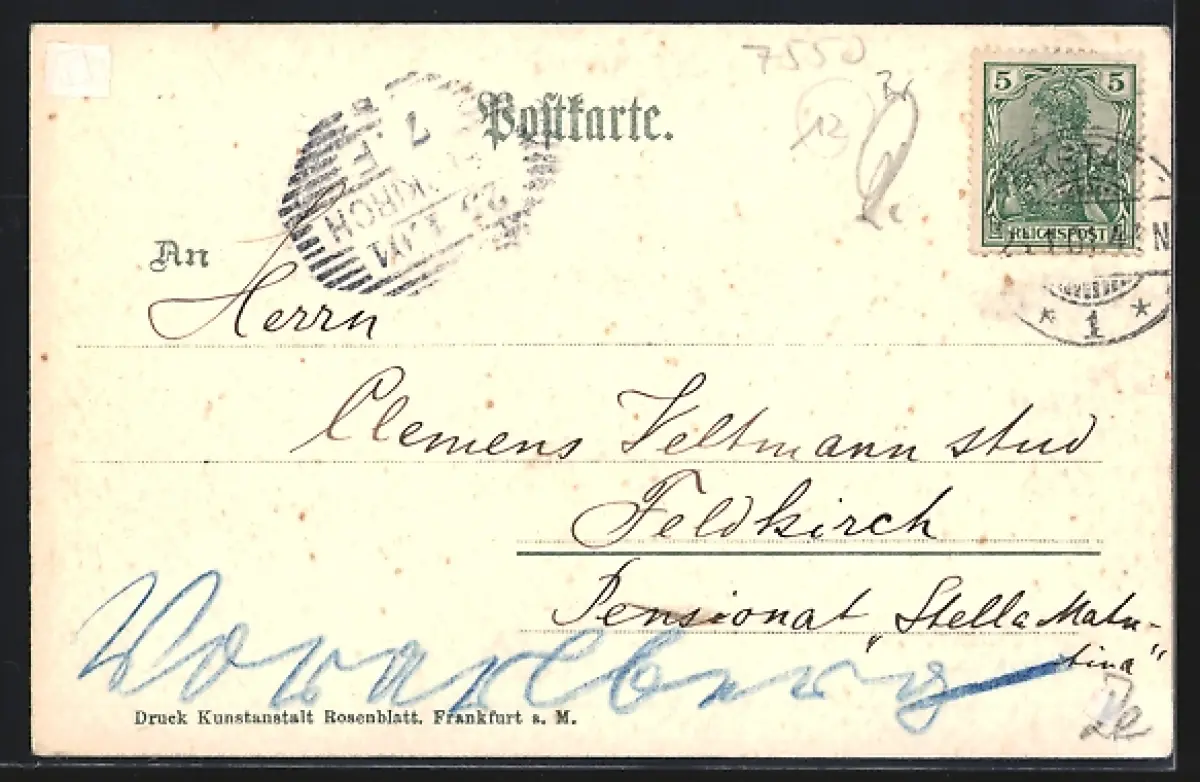 7550
Postkarte.
12
5 5
REICHSPOST
KIRCH
7
1
An
Herrn
Clemens Veltmann stud
Feldkirch
Pensionat „Stella Matu-
tina"
Vorarlberg
Druck Kunstanstalt Rosenblatt. Frankfurt a. M.